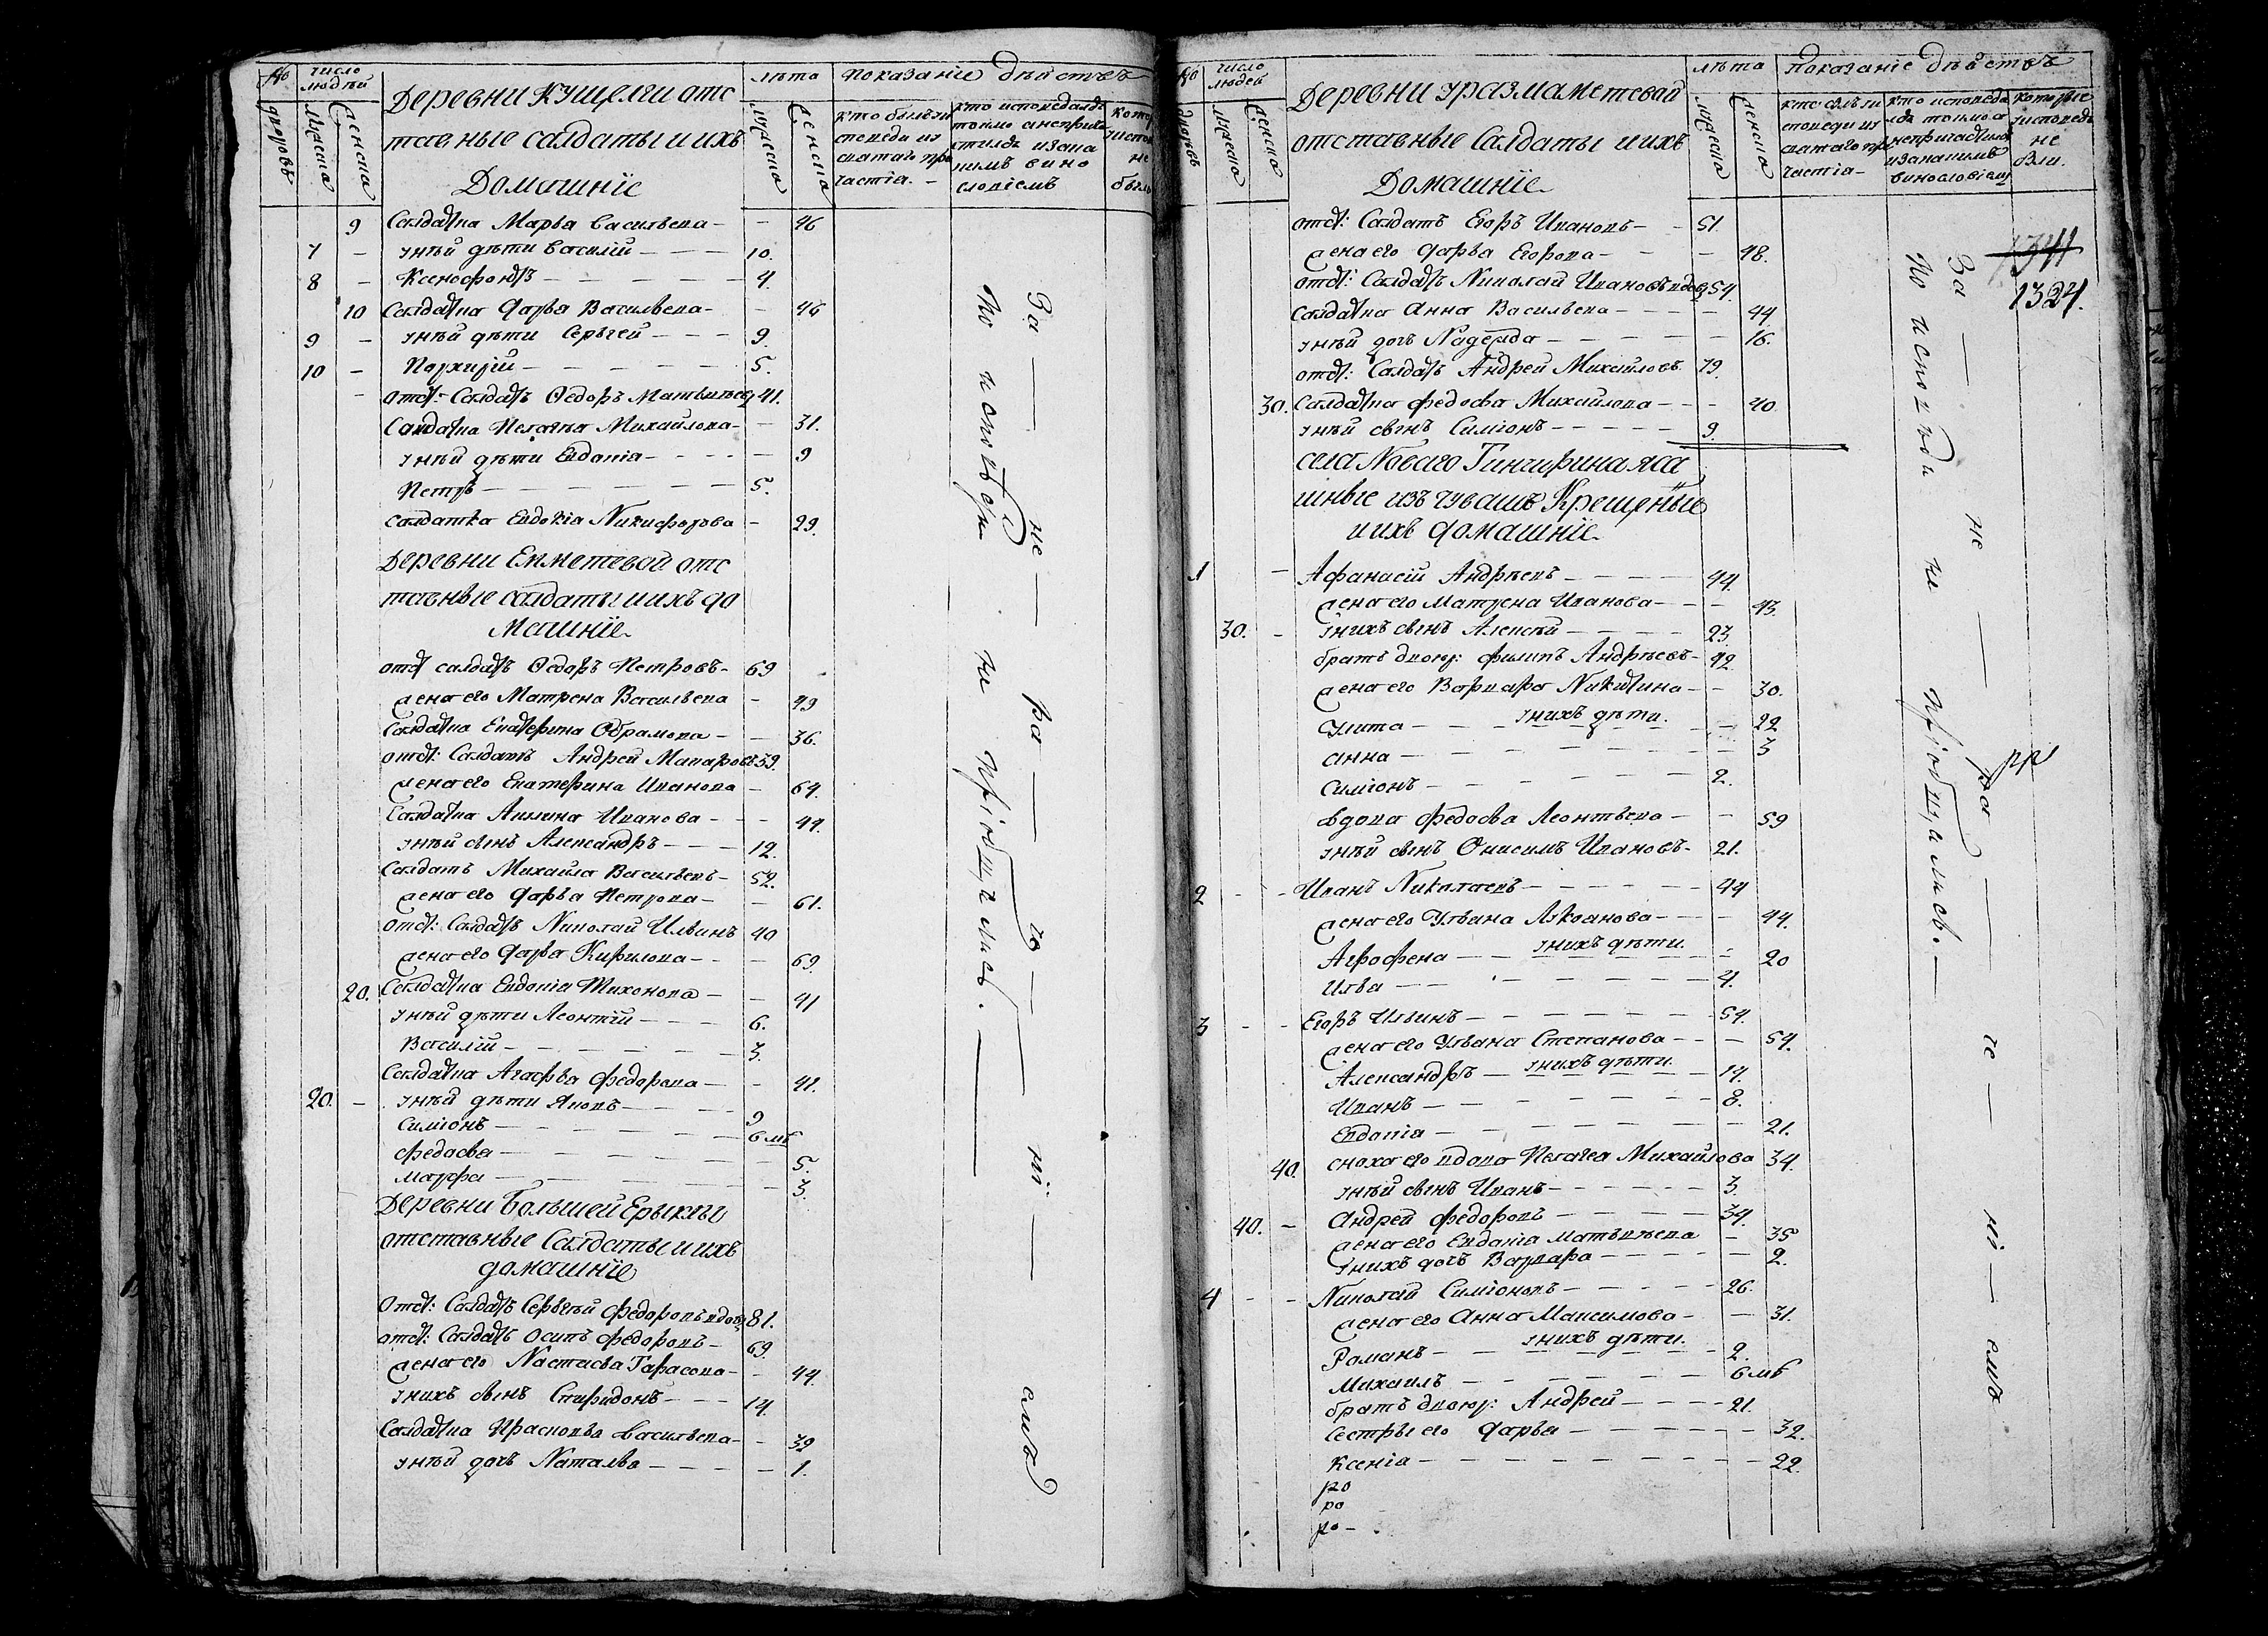 № дворовъ
число людѣй
мужеска
женска
Деревни Кущелги отс
тавные салдаты и ихъ
Домашнїе
лѣта
мужеска
женска
Показанїе дѣйствъ
кто былъ у исповеди и святаго причастїа
9 Салдатка Марья Васильева - - 46
7 - у нѣй дѣти Василїй - - - 10.
8 - Ксенофонтъ - - - 4.
10 Салдатка Дарья Васильева - - 46
9 - у нѣй дѣти Сергѣй - - - 9.
10 - Порхирїй - - - 5.
- отст: Салдатъ Ѳедоръ Матвѣевъ 41.
Салдатка Пелагея Михайлова - - 31.
у нѣй дѣти Евдокїа - - - 9
Петръ - - - 5.
салдатка Евдокїа Никифорова - 29.
Деревни Екметевой отс
тавные салдаты и ихъ до
машнїе
отст салдатъ Ѳедоръ Петровъ - 69
жена его Матрена Васильева - 49
Салдатка Екатерина Обрамова - - 36.
отст: Салдатъ Андрей Макаровъ 39.
жена его Екатерина Иванова - 64.
Салдатка Акилина Иванова - - - 44.
у нѣй сынъ Александръ - - - 12.
Салдатъ Михайла Васильевъ - 52.
жена его Дарья Петрова - - 61.
отст: Салдатъ Николай Ильинъ 40
жена его Дарья Кирилова - - - 69.
20. Салдатка Евдокїа Тихонова - - 41
у нѣй дѣти Леонтїй - - - 6.
Василїй - - - 3.
Салдатка Агафья Федорова - - 41.
20. - у нѣй дѣти Яковъ - - - 9
Симїонъ - - - 6 мѣ
Федосья - - - 5.
Марфа - - - 3.
Деревни Большей Ерыклы
отставные Салдаты и ихъ
домашнїе
Отст: Салдатъ Сергѣй Федоровъ вдовъ 81.
отст: Салдатъ Осипъ Федоровъ - 69.
жена его Настасья Тарасова - - 44.
у нихъ сынъ Спиридонъ - - - 14.
Салдатка Прасковья Васильева - - 39
у нѣй дочь Наталья - - - 1.
За не ра че нї емъ
по исповѣди не прїобщились.
№ дворовъ
число людей
мужеска
женска
Деревни Уразмаметевой
отставные Салдаты и ихъ
Домашнїе
лѣта
мужеска
женска
показанїе дѣйствъ
которые у исповеди не были.
отст: Салдатъ Егоръ Ивановъ - - 51.
жена его Дарья Егорова - - - 48.
отст: Салдатъ Николай Ивановъ вдовъ 54.
Салдатка Анна Васильева - - - 44.
у нѣй дочь Надежда - - - 16.
отст: Салдатъ Андрей Михайловъ 79.
30. Салдатка Федосья Михайлова - - - 40
у нѣй сынъ Симїонъ - - - 9.
села Новаго Тинчурина яса
шные изъ чувашъ Крещеные
и ихъ домашнїе
1 - Афанасїй Андрѣевъ - - - 44.
жена его Матрена Иванова - - - 43.
30. - у нихъ сынъ Алексѣй - - - 23
братъ двоюр: Филипъ Андрѣевъ - 42.
жена его Варвара Никитина - - 30.
у нихъ дѣти.
Улита - - - 22
Анна - - - 3
Симїонъ - - - 2.
вдова Федосья Леонтьева - - 59
у нѣй сынъ Онисимъ Ивановъ - 21.
2 - - Иванъ Николаевъ - - - 44
жена его Ульяна Лукоанова - - - 44.
у нихъ дѣти.
Агрофена - - - 20
Илья - - - 4.
3 - - Егоръ Ильинъ - - - 54.
жена его Ульяна Степанова - - - 54.
у нихъ дѣти.
Александръ - - - 14.
Иванъ - - - 8.
Евдокїа - - - 21.
40. сноха его вдова Пелагея Михайлова 34.
у нѣй сынъ Иванъ - - - 3.
40. - Андрей Федоровъ - - - 34.
жена его Евдокїа Матвѣева - 35
у нихъ дочь Варвара - - - 2.
4 - - Николай Симїоновъ - - - 26.
жена его Анна Максимова - - 31.
у нихъ дѣти.
Романъ - - - 2.
Михаилъ - - - 6 мѣ
братъ двоюр: Андрей - - - 21.
Сестры его Дарья - - - 32.
Ксенїа - - - 22.
ро
ро
ро -
1341
1324.
За не ра че нї емъ
по исповѣди не прїобщились. -